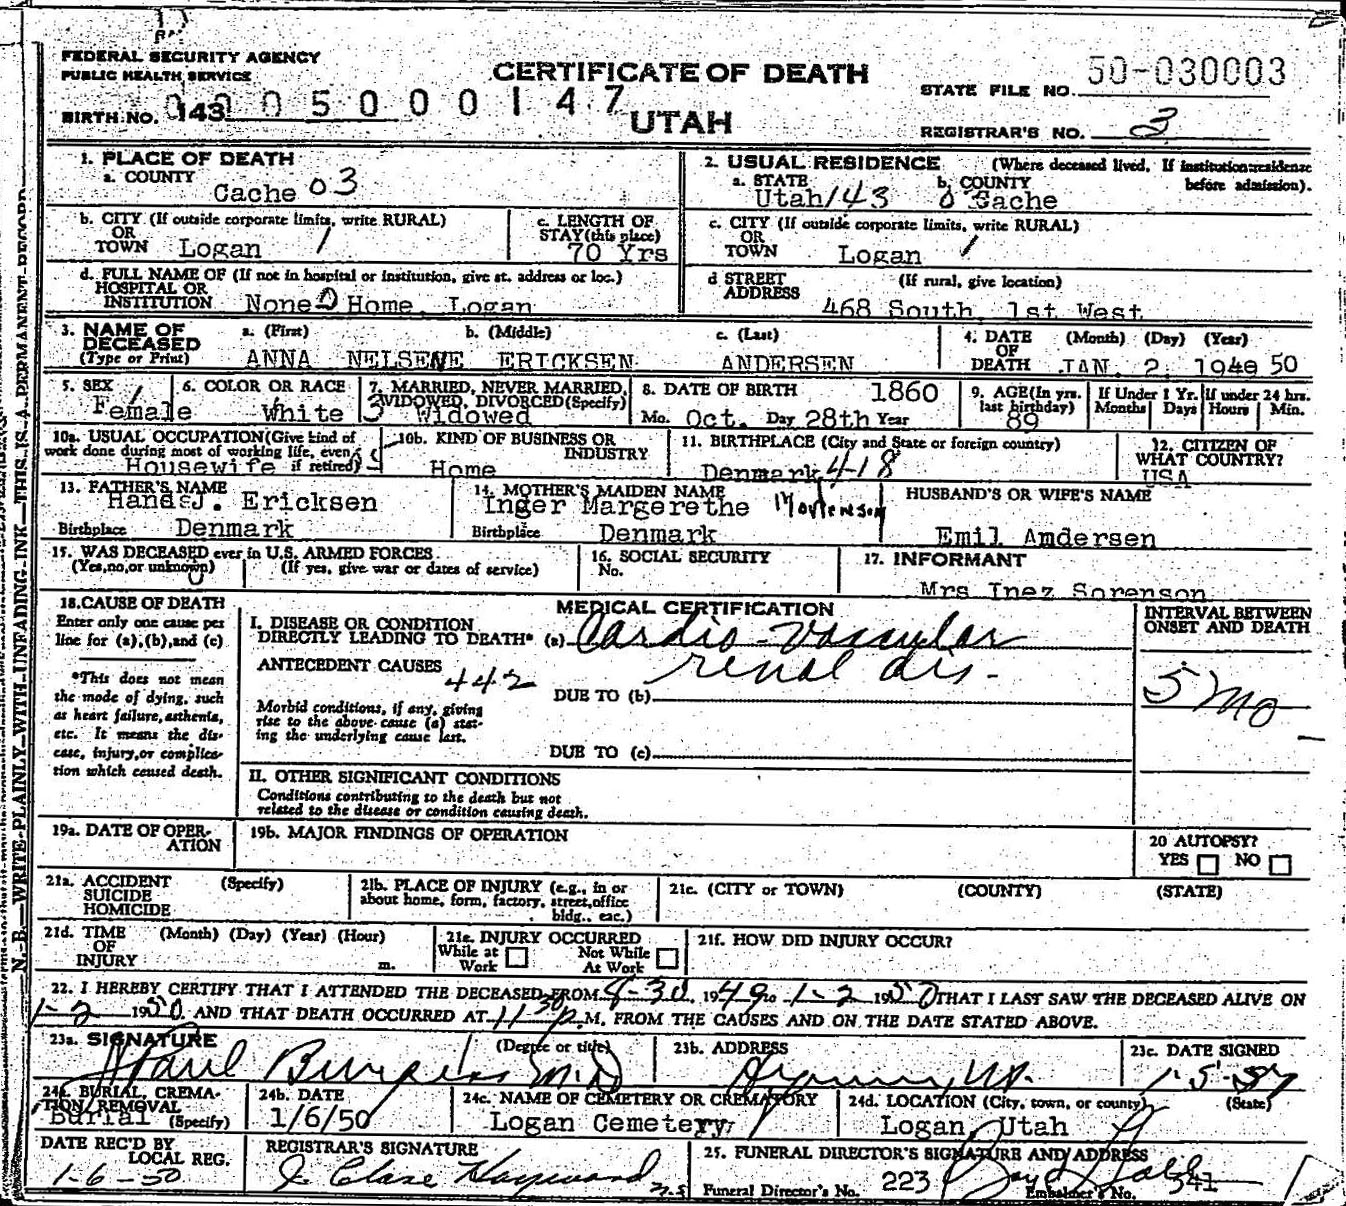 FEDERAL SECURITY AGENCY
PUBLIC HEALTH SERVICE
CERTIFICATE OF DEATH
STATE FILE NO. 50-030003
BIRTH NO. 143 0005000147
UTAH
REGISTRAR'S NO. 3
1. PLACE OF DEATH
a. COUNTY
Cache 03
2. USUAL RESIDENCE (Where deceased lived. If institution: residence before admission).
a. STATE b. COUNTY
Utah 143 0 Cache
b. CITY (If outside corporate limits, write RURAL)
OR
TOWN Logan 1
c. LENGTH OF
STAY (this place)
70 Yrs
c. CITY (If outside corporate limits, write RURAL)
OR
TOWN Logan 1
d. FULL NAME OF (If not in hospital or institution, give st. address or loc.)
HOSPITAL OR
INSTITUTION None 0 Home, Logan
d STREET (If rural, give location)
ADDRESS
468 South, 1st West
3. NAME OF
DECEASED
(Type or Print)
a. (First) b. (Middle) c. (Last)
ANNA NELSENE ERICKSEN ANDERSEN
4. DATE (Month) (Day) (Year)
OF
DEATH JAN. 2, 1949 50
5. SEX 1
Female
6. COLOR OR RACE
White
7. MARRIED, NEVER MARRIED,
WIDOWED, DIVORCED (Specify)
3 Widowed
8. DATE OF BIRTH 1860
Mo. Oct. Day 28th Year
9. AGE (In yrs.
last birthday)
89
If Under 1 Yr.
Months Days
If under 24 hrs.
Hours Min.
10a. USUAL OCCUPATION (Give kind of
work done during most of working life, even
if retired)
Housewife
10b. KIND OF BUSINESS OR
INDUSTRY
Home
11. BIRTHPLACE (City and State or foreign country)
Denmark 418
12. CITIZEN OF
WHAT COUNTRY?
USA
13. FATHER'S NAME
Hans J. Ericksen
Birthplace Denmark
14. MOTHER'S MAIDEN NAME
Inger Margerethe Mortensen
Birthplace Denmark
HUSBAND'S OR WIFE'S NAME
Emil Amdersen
15. WAS DECEASED ever in U.S. ARMED FORCES
(Yes, no, or unknown) (If yes, give war or dates of service)
16. SOCIAL SECURITY
No.
17. INFORMANT
Mrs Inez Sorenson
18. CAUSE OF DEATH
Enter only one cause per
line for (a), (b), and (c)
*This does not mean
the mode of dying, such
as heart failure, asthenia,
etc. It means the dis-
ease, injury, or complica-
tion which caused death.
MEDICAL CERTIFICATION
I. DISEASE OR CONDITION
DIRECTLY LEADING TO DEATH* (a) Cardio-Vascular
renal dis.
ANTECEDENT CAUSES
442
DUE TO (b)
Morbid conditions, if any, giving
rise to the above cause (a) stat-
ing the underlying cause last.
DUE TO (c)
II. OTHER SIGNIFICANT CONDITIONS
Conditions contributing to the death but not
related to the disease or condition causing death.
INTERVAL BETWEEN
ONSET AND DEATH
5 mo
19a. DATE OF OPER-
ATION
19b. MAJOR FINDINGS OF OPERATION
20 AUTOPSY?
YES NO
21a. ACCIDENT (Specify)
SUICIDE
HOMICIDE
21b. PLACE OF INJURY (e.g., in or
about home, form, factory, street, office
bldg., eac.)
21c. (CITY or TOWN) (COUNTY) (STATE)
21d. TIME (Month) (Day) (Year) (Hour)
OF
INJURY m.
21e. INJURY OCCURRED
While at Not While
Work At Work
21f. HOW DID INJURY OCCUR?
22. I HEREBY CERTIFY THAT I ATTENDED THE DECEASED FROM 8-30, 1949 to 1-2 1950 THAT I LAST SAW THE DECEASED ALIVE ON
1-2 1950, AND THAT DEATH OCCURRED AT 11:30 P.M. FROM THE CAUSES AND ON THE DATE STATED ABOVE.
23a. SIGNATURE (Degree or title)
Burgess M.D.
23b. ADDRESS
Hyrum, Ut.
23c. DATE SIGNED
1-5-50
24a. BURIAL, CREMA-
TION, REMOVAL
Burial (Specify)
24b. DATE
1/6/50
24c. NAME OF CEMETERY OR CREMATORY
Logan Cemetery
24d. LOCATION (City, town, or county) (State)
Logan, Utah
DATE REC'D BY
LOCAL REG.
1-6-50
REGISTRAR'S SIGNATURE
J. Clare Hayward
25. FUNERAL DIRECTOR'S SIGNATURE AND ADDRESS
Funeral Director's No. 223
Embalmer's No. 341
N. B.—WRITE PLAINLY WITH UNFADING INK—THIS IS A PERMANENT RECORD